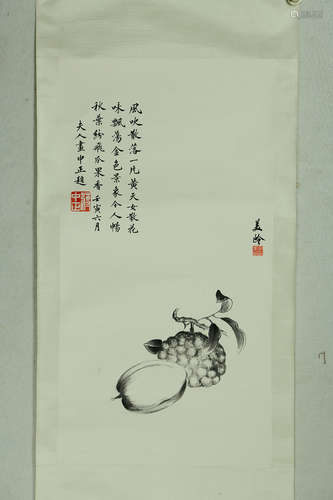 風吹散落一片黃天女散花
味飄蕩金色景象令人暢
秋葉紛飛瓜果香壬寅六月
夫人畫中正題
美齡